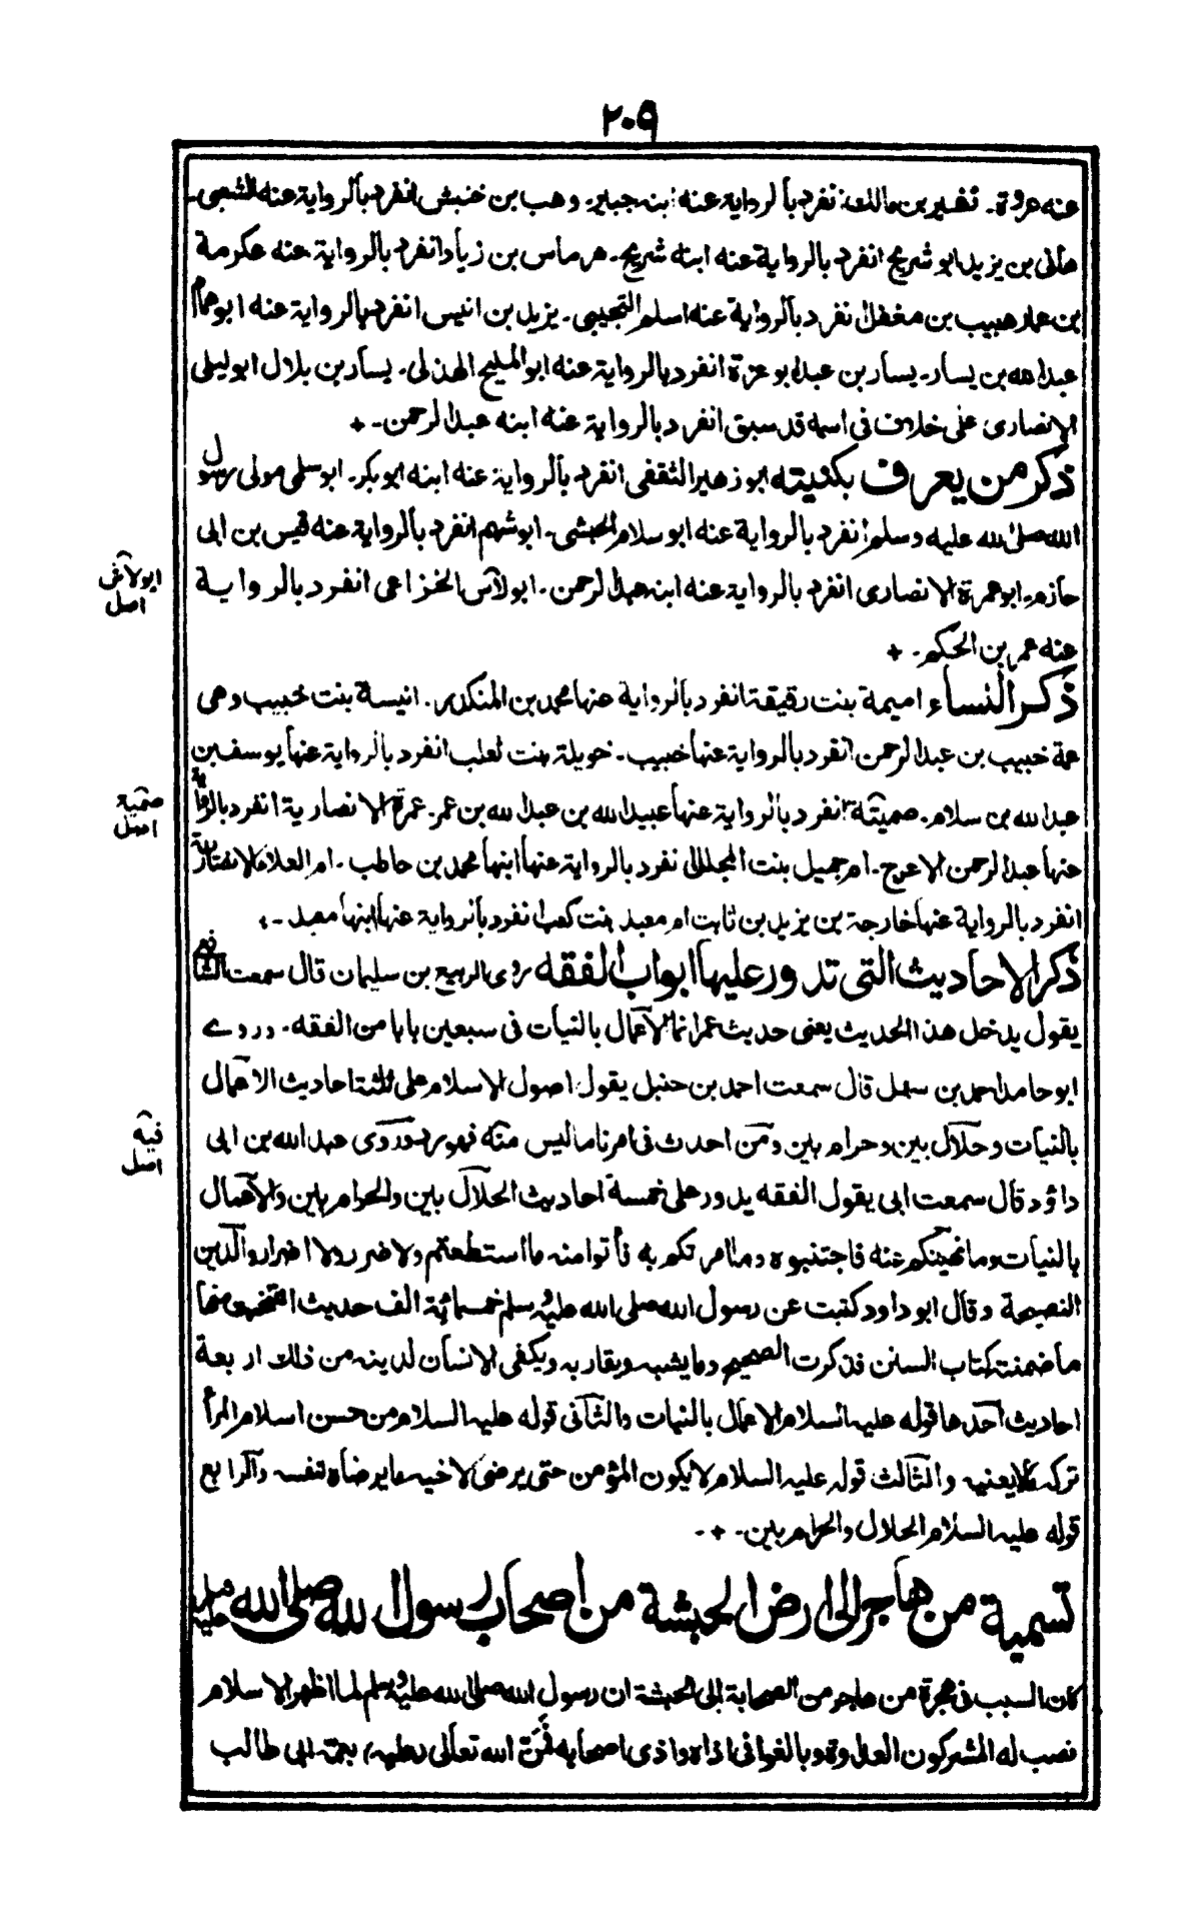 ٢٠٩
عنه عروة۔ نضير بن مالك انفرد بالرواية عنه ابنه جبير۔ وهب بن خنبش انفرد بالرواية عنه الشعبى۔
هانى بن يزيد ابو شريح انفرد بالرواية عنه ابنه شريح۔ هرماس بن زياد انفرد بالرواية عنه عكرمة
بن عمار هبيب بن مغفل انفرد بالرواية عنه اسلم التجيبى۔ يزيد بن انيس انفرد بالرواية عنه ابو همام
عبدالله بن يسار۔ يسار بن عبد ابو عزة انفرد بالرواية عنه ابو المليح الهذلى۔ يسار بن بلال ابو ليلى
الانصارى على خلاف فى اسمه قد سبق انفرد بالرواية عنه ابنه عبد الرحمن۔ +
ذكر من يعرف بكنيته ابو زهير الثقفى انفرد بالرواية عنه ابنه ابو بكر۔ ابو سلمى مولى رسول
الله صلى الله عليه وسلم انفرد بالرواية عنه ابو سلام الحبشى۔ ابو شهم انفرد بالرواية عنه قيس بن ابى
حازم۔ ابو عمرة الانصارى انفرد بالرواية عنه ابنه عبد الرحمن۔ ابو لاس الخزاعى انفرد بالرواية
ابولاش
اصل
عنه عمر بن الحكم۔ +
ذكر النساء اميمة بنت رقيقة انفرد بالرواية عنها محمد بن المنكدر۔ انيسة بنت خبيب وهى
عمة خبيب بن عبد الرحمن انفرد بالرواية عنها خبيب۔ خويلة بنت ثعلب انفرد بالرواية عنها يوسف بن
عبدالله بن سلام۔ صميتة انفرد بالرواية عنها عبيد الله بن عبد الله بن عمر۔ عمرة الانصارية انفرد بالرواية
صميته
اصل
عنها عبد الرحمن الاعرج۔ ام جميل بنت المجلل انفرد بالرواية عنها ابنها محمد بن حاطب۔ ام العلاء الانصارية
انفرد بالرواية عنها خارجة بن يزيد بن ثابت ام معبد بنت كعب انفرد بالرواية عنها ابنها معبد۔
ذكر الاحاديث التى تدور عليها ابواب الفقه روى الربيع بن سليمان قال سمعت الشافعى
يقول يدخل هذا الحديث يعنى حديث عمر انما الاعمال بالنيات فى سبعين بابا من الفقه۔ وروے
ابو حامد احمد بن سهل قال سمعت احمد بن حنبل يقول اصول الاسلام على ثلثة احاديث الاعمال
بالنيات وحلال بين وحرام بين ومن احدث فى امرنا ما ليس منه فهو رد وروى عبد الله بن ابى
فيه
اصل
داؤد قال سمعت ابى يقول الفقه يدور على خمسة احاديث الحلال بين والحرام بين والاعمال
بالنيات وما نهيتكم عنه فاجتنبوه وما امرتكم به فأتوا منه ما استطعتم ولا ضرر ولا اضرار والدين
النصيحة وقال ابو داود كتبت عن رسول الله صلى الله عليه وسلم خمسمائة الف حديث انتخبت منها
ما ضمنته كتاب السنن فذكرت الصحيح وما يشبهه ويقاربه ويكفى الانسان لدينه من ذلك اربعة
احاديث احدها قوله عليه السلام الاعمال بالنيات والثانى قوله عليه السلام من حسن اسلام المرأ
تركه مالا يعنيه والثالث قوله عليه السلام لا يكون المؤمن حتى يرضى لاخيه ما يرضاه لنفسه والرابع
قوله عليه السلام الحلال والحرام بين۔ +۔
تسمية من هاجر الى ارض الحبشة من اصحاب رسول الله صلى الله عليه وسلم
كان السبب فى هجرة من هاجر من الصحابة الى الحبشة ان رسول الله صلى الله عليه وسلم لما اظهر الاسلام
نصب له المشركون العداوة وبالغوا فى اذاه واذى اصحابه فمن الله تعالى عليه بعمه ابى طالب